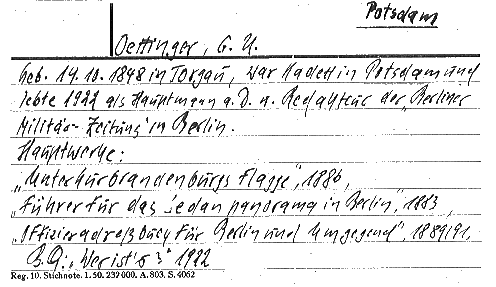 Potsdam
Oettinger, G. U.
Geb. 14.10.1848 in Torgau, war Kadett in Potsdam und
lebte 1922 als Hauptmann a.D. u. Redakteur der „Berliner
Militär-Zeitung" in Berlin.
Hauptwerke:
„Unter Kurbrandenburgs Flagge", 1886,
„Führer für das Sedanpanorama in Berlin", 1883,
„Offizieradreßbuch für Berlin und Umgegend", 1889/91,
B.Q.: „Wer ist's?" 1922
Reg. 10. Stichnote. 1. 50. 237 000. A. 803. S. 4062